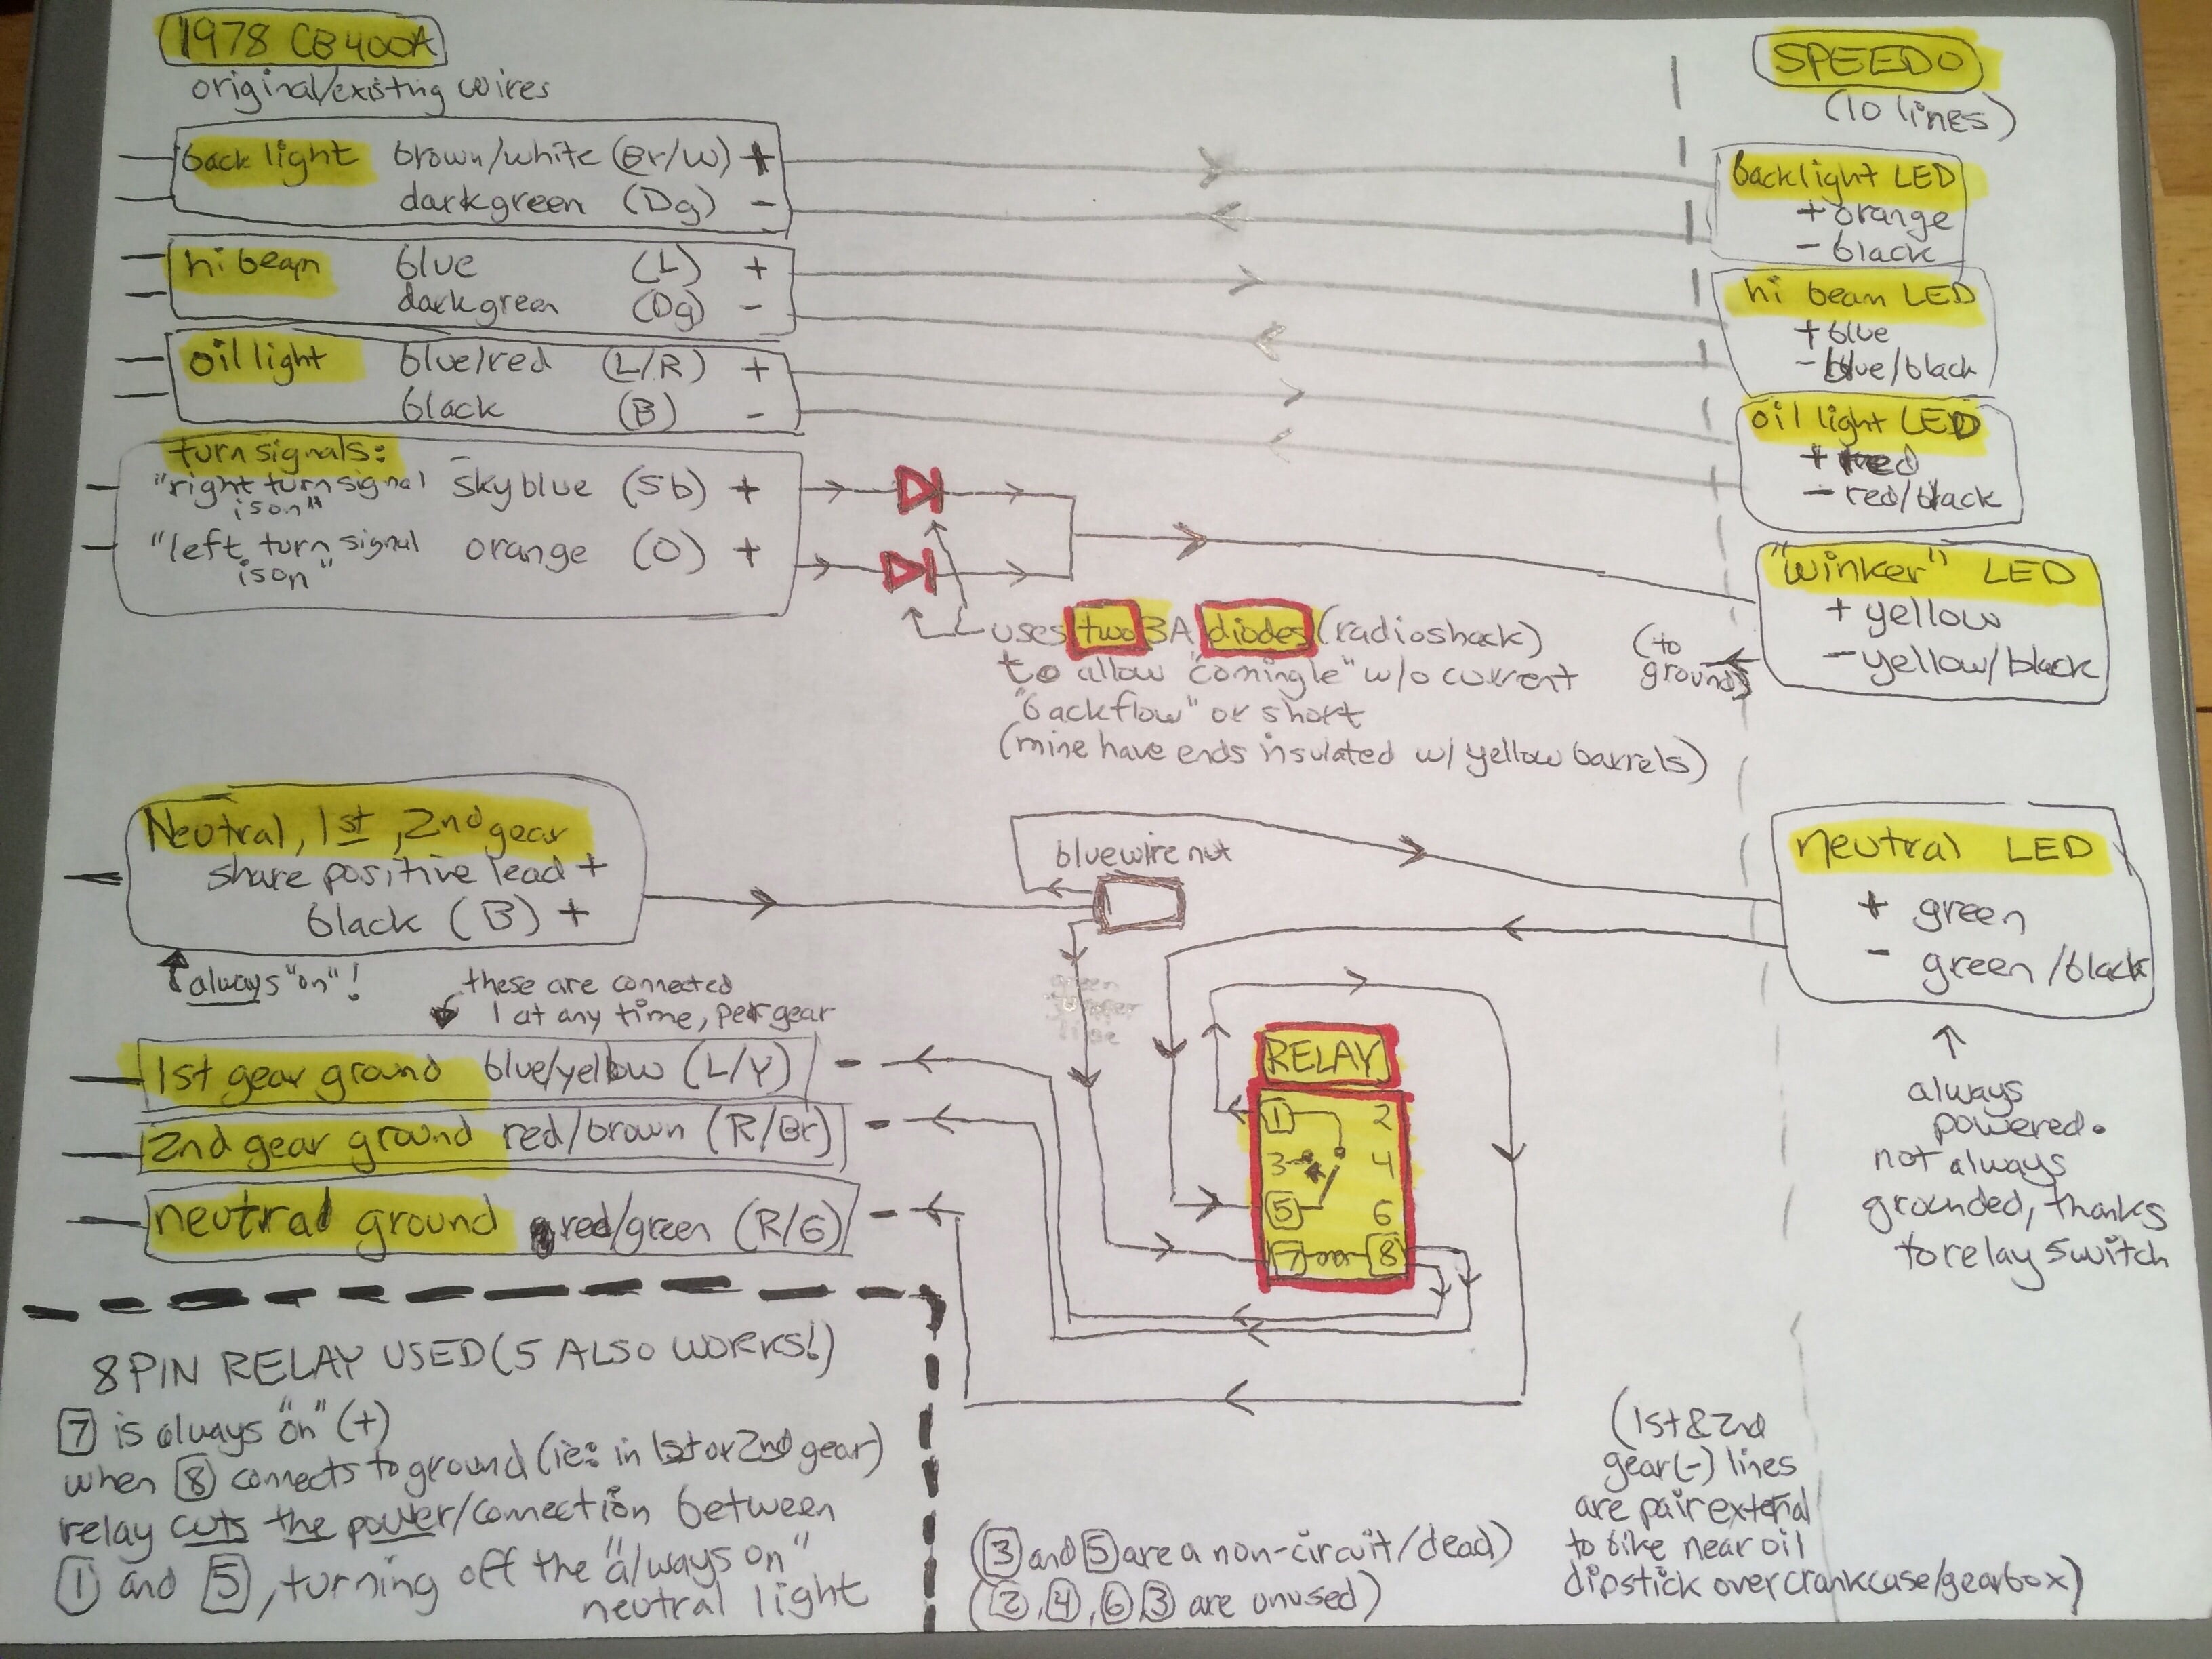 1978 CB400A
original/existing wires
SPEEDO
(10 lines)
back light brown/white (Br/W) +
darkgreen (Dg) -
hi beam blue (L) +
darkgreen (Dg) -
oil light blue/red (L/R) +
black (B) -
turn signals:
"right turn signal ison" skyblue (Sb) +
"left turn signal ison" orange (O) +
backlight LED
+ orange
- black
hi beam LED
+ blue
- blue/black
oil light LED
+ red
- red/black
"winker" LED
+ yellow
- yellow/black
(to ground)
uses two 3A diodes (radioshack)
to allow "comingle" w/o current
"backflow" or short
(mine have ends insulated w/ yellow barrels)
Neutral, 1st, 2nd gear
share positive lead +
black (B) +
always "on"!
bluewire nut
green jumper line
neutral LED
+ green
- green/black
always
powered.
not always
grounded, thanks
to relay switch
these are connected
1 at any time, per gear
1st gear ground blue/yellow (L/Y) -
2nd gear ground red/brown (R/Br) -
neutral ground red/green (R/G) -
RELAY
1 2
3 4
5 6
7 8
8 PIN RELAY USED (5 ALSO WORKS!)
7 is always "on" (+)
when 8 connects to ground (ie: in 1st or 2nd gear)
relay cuts the power/connection between
1 and 5, turning off the "always on"
neutral light
(3 and 5 are a non-circuit/dead)
(2, 4, 6, 3 are unused)
(1st & 2nd
gear (-) lines
are pair external
to bike near oil
dipstick over crankcase/gearbox)